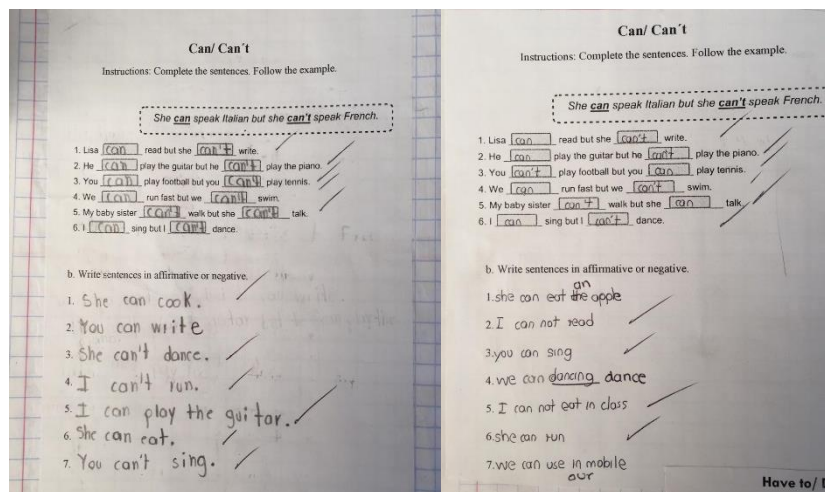 Can/ Can´t
Instructions: Complete the sentences. Follow the example.
She can speak Italian but she can't speak French.
1. Lisa can read but she can't write.
2. He can play the guitar but he can't play the piano.
3. You can play football but you can't play tennis.
4. We can run fast but we can't swim.
5. My baby sister can't walk but she can't talk.
6. I can sing but I can't dance.
b. Write sentences in affirmative or negative.
1. She can cook.
2. You can write
3. She can't dance.
4. I can't run.
5. I can play the guitar.
6. She can eat.
7. You can't sing.
Can/ Can´t
Instructions: Complete the sentences. Follow the example.
She can speak Italian but she can't speak French.
1. Lisa can read but she can't write.
2. He can play the guitar but he can't play the piano.
3. You can't play football but you can play tennis.
4. We can run fast but we can't swim.
5. My baby sister can't walk but she can talk.
6. I can sing but I can't dance.
b. Write sentences in affirmative or negative.
an
1. she can eat the apple
2. I can not read
3. you can sing
4. we can dancing dance
5. I can not eat in class
6. she can run
7. we can use in mobile
our
Have to/